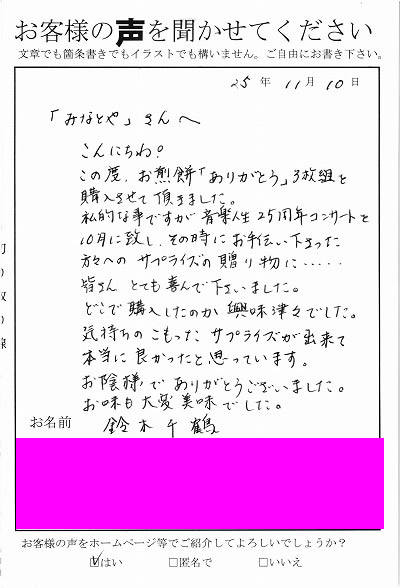 お客様の声を聞かせてください
文章でも箇条書きでもイラストでも構いません。ご自由にお書き下さい。
25年 11月 10日
「みなとや」さんへ
こんにちわ!
この度、お煎餅「ありがとう」3枚組を
購入させて頂きました。
私的な事ですが音楽人生25周年コンサートを
10月に致し、その時にお手伝い下さった
方々へのサプライズの贈り物に・・・・・
皆さんとても喜んで下さいました。
どこで購入したのか興味津々でした。
気持ちのこもったサプライズが出来て
本当に良かったと思っています。
お陰様でありがとうございました。
お味も大変美味でした。
お名前 鈴木千鶴
お客様の声をホームページ等でご紹介してよろしいでしょうか?
☑はい □匿名で □いいえ